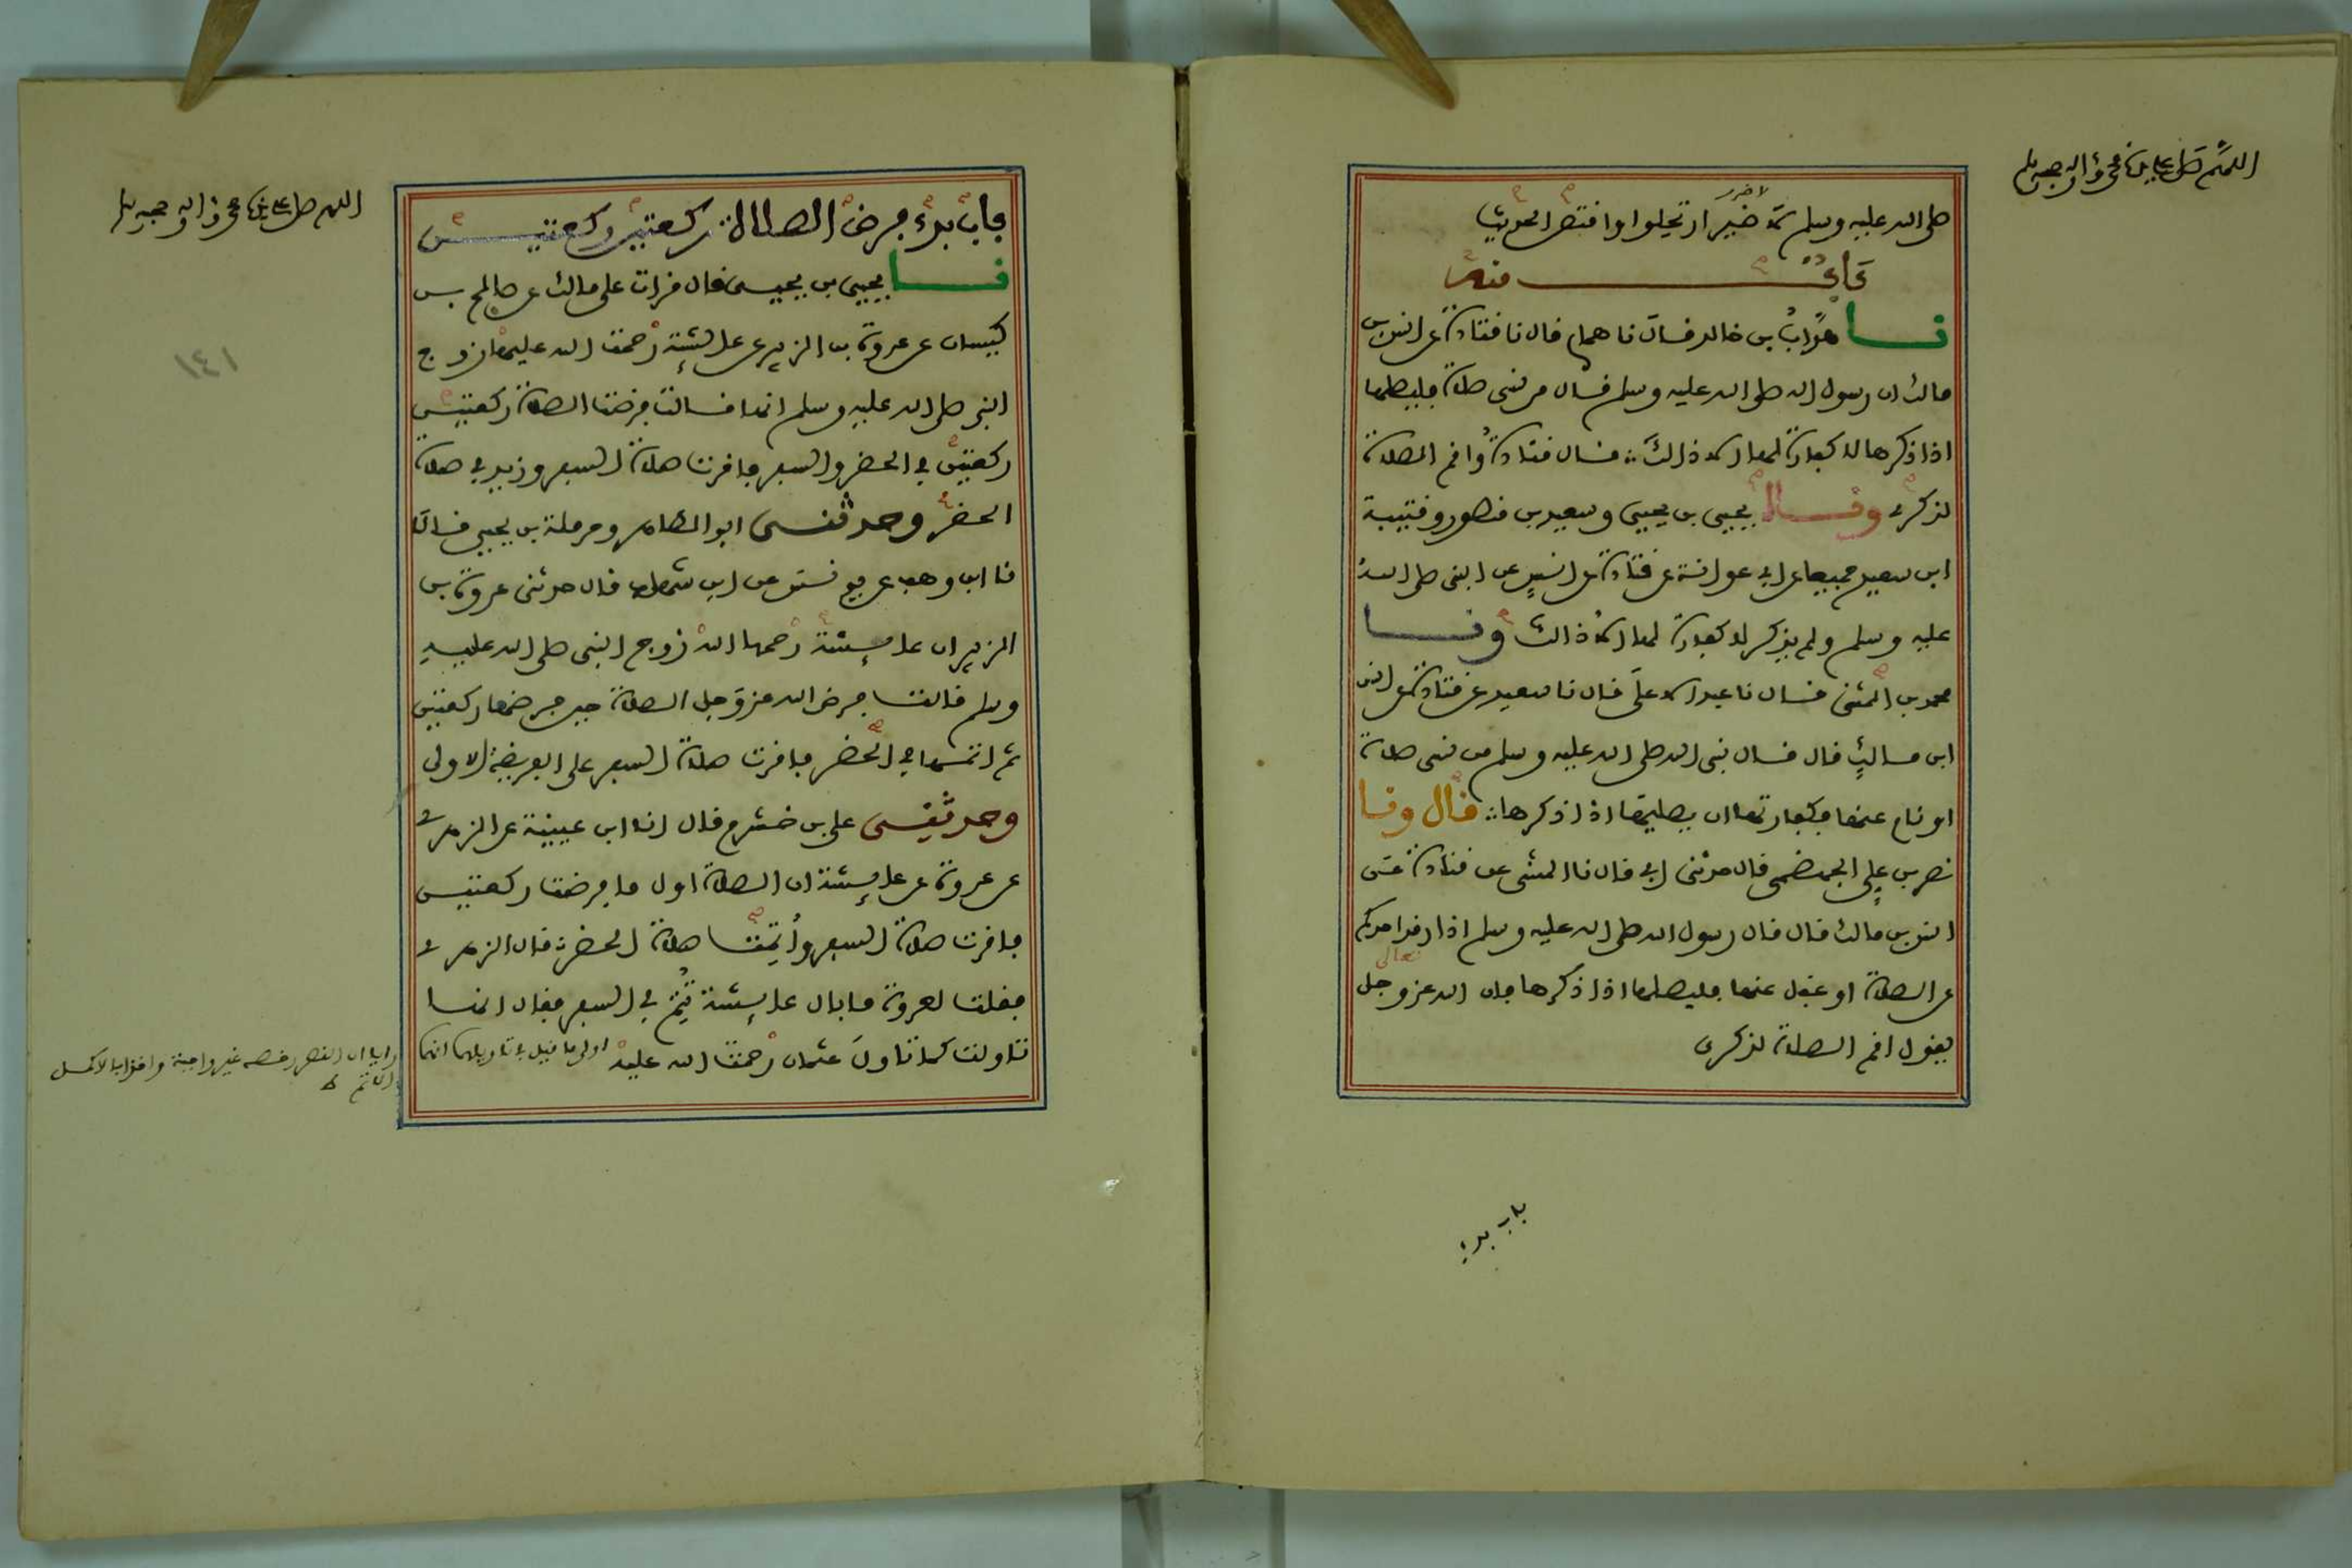 اللهم صل على سيدنا محمد وآله وصحبه وسلم
صلى الله عليه وسلم لا ضير ارتحلوا واقتص الحديث
لا ضرر
باب منه
نا هداب بن خالد قال نا همام قال نا قتادة عن انس بن
مالك ان رسول الله صلى الله عليه وسلم قال من نسى صلاة فليصلها
اذا ذكرها لا كفارة لها الا ذالك قال قتادة واقم الصلاة
لذكرى ونا يحيى بن يحيى وسعيد بن منصور وقتيبة
ابن سعيد جميعا عن ابى عوانة عن قتادة عن انس عن النبى صلى الله
عليه وسلم ولم يذكر لا كفارة لها الا ذالك ونا
محمد بن المثنى قال نا عبد الاعلى قال نا سعيد عن قتادة عن انس
ابن مالك قال قال نبى الله صلى الله عليه وسلم من نسى صلاة
او نام عنها فكفارتها ان يصليها اذا ذكرها قال ونا
نصر بن على الجهضمى قال حدثنى ابى قال نا المثنى عن قتادة عن
انس بن مالك قال قال رسول الله صلى الله عليه وسلم اذا رقد احدكم
عن الصلاة او غفل عنها فليصلها اذا ذكرها فان الله عز وجل
تعالى
يقول اقم الصلاة لذكرى
باب بدء
اللهم صل على سيدنا محمد وآله وصحبه وسلم
١٤١
باب بدء فرض الصلاة ركعتين ركعتين
نا يحيى بن يحيى قال قرات على مالك عن صالح بن
كيسان عن عروة بن الزبير عن عايشة رحمت الله عليها زوج
النبى صلى الله عليه وسلم انها قالت فرضت الصلاة ركعتين
ركعتين فى الحضر والسفر فاقرت صلاة السفر وزيد فى صلاة
الحضر وحدثنى ابو الطاهر وحرملة بن يحيى قالا
نا ابن وهب عن يونس عن ابن شهاب قال حدثنى عروة بن
الزبير ان عايشة رحمها الله زوج النبى صلى الله عليه
وسلم قالت فرض الله عز وجل الصلاة حين فرضها ركعتين
ثم اتمها فى الحضر فاقرت صلاة السفر على الفريضة الاولى
وحدثنى على بن خشرم قال انا ابن عيينة عن الزهرى
عن عروة عن عايشة ان الصلاة اول ما فرضت ركعتين
فاقرت صلاة السفر واتمت صلاة الحضر قال الزهرى
فقلت لعروة ما بال عايشة تتم فى السفر فقال انها
تاولت كما تاول عثمان رحمت الله عليه اولى ما قيل فى تاويلهما انهما
رايا ان القصر رخصة غير واجبة واخذا بالاكمل
الاتم ط